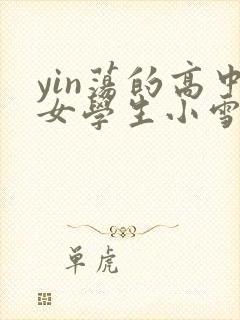 yin蕩的高中
女學生小雪
单虎